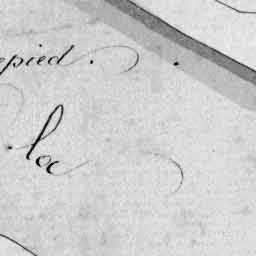 epied.
loc